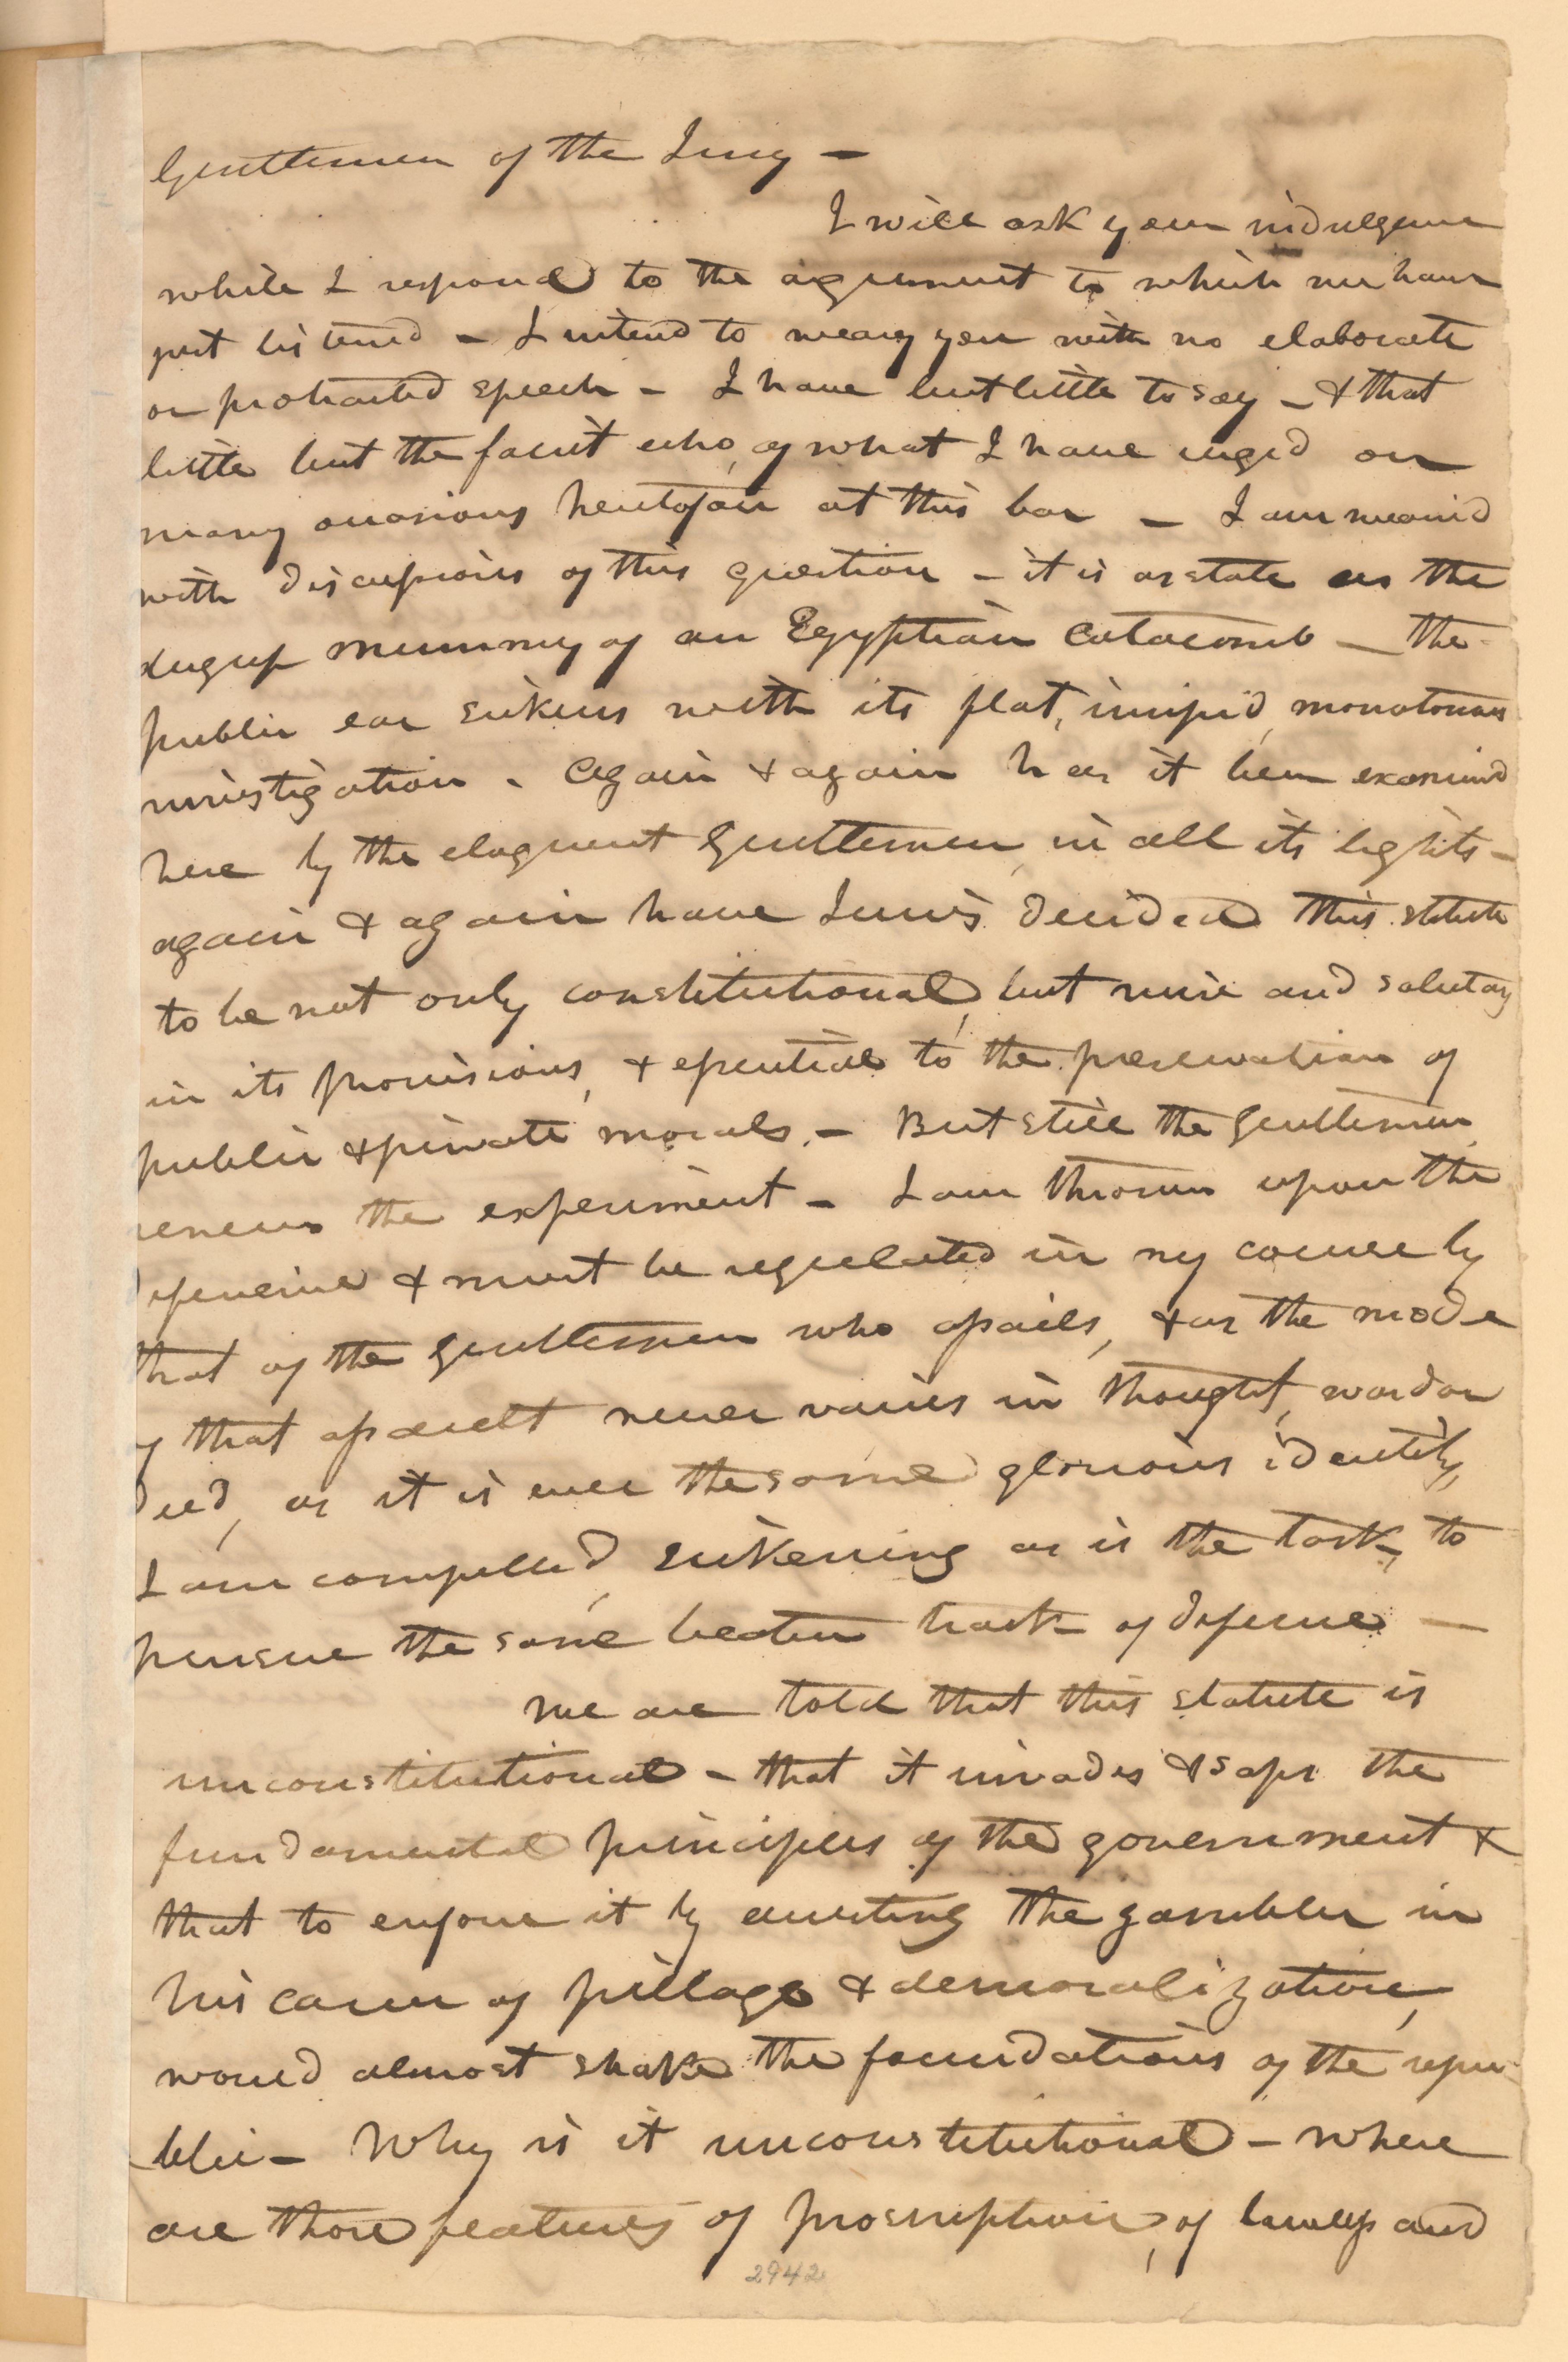 Gentlemen of the Jury —
I will ask your indulgence
while I respond to the argument to which we have
just listened — I intend to weary you with no elaborate
or protracted speech — I have but little to say — & that
little but the faint echo, of what I have urged on
many occasions heretofore at this bar — I am wearied
with discussions of this question — it is as stale as the
dugup mummy of an Egyptian Catacomb — the
public ear sickens with its flat, insipid, monotonous
investigation. Again & again has it been examined
here by the eloquent Gentlemen, in all its lights —
again & again have Juries decided this statute
to be not only constitutional, but wise and salutary
in its provisions, & essential to the preservation of
public & private morals. — But still the Gentlemen
renew the experiment — I am thrown upon the
defensive & must be regulated in my course by
that of the Gentlemen who assails, & as the mode
of that assault never varies in thought, word or
deed, as it is ever the same glorious identity,
I am compelled, sickening as is the task, to
pursue the same beaten track of defence —
We are told that this statute is
unconstitutional — that it invades & saps the
fundamental principles of the government &
that to enforce it by arresting the gambler in
his career of pillage & demoralization,
would almost shake the foundations of the repu-
blic — Why is it unconstitutional — where
are those features of proscription, of lawless and
2942